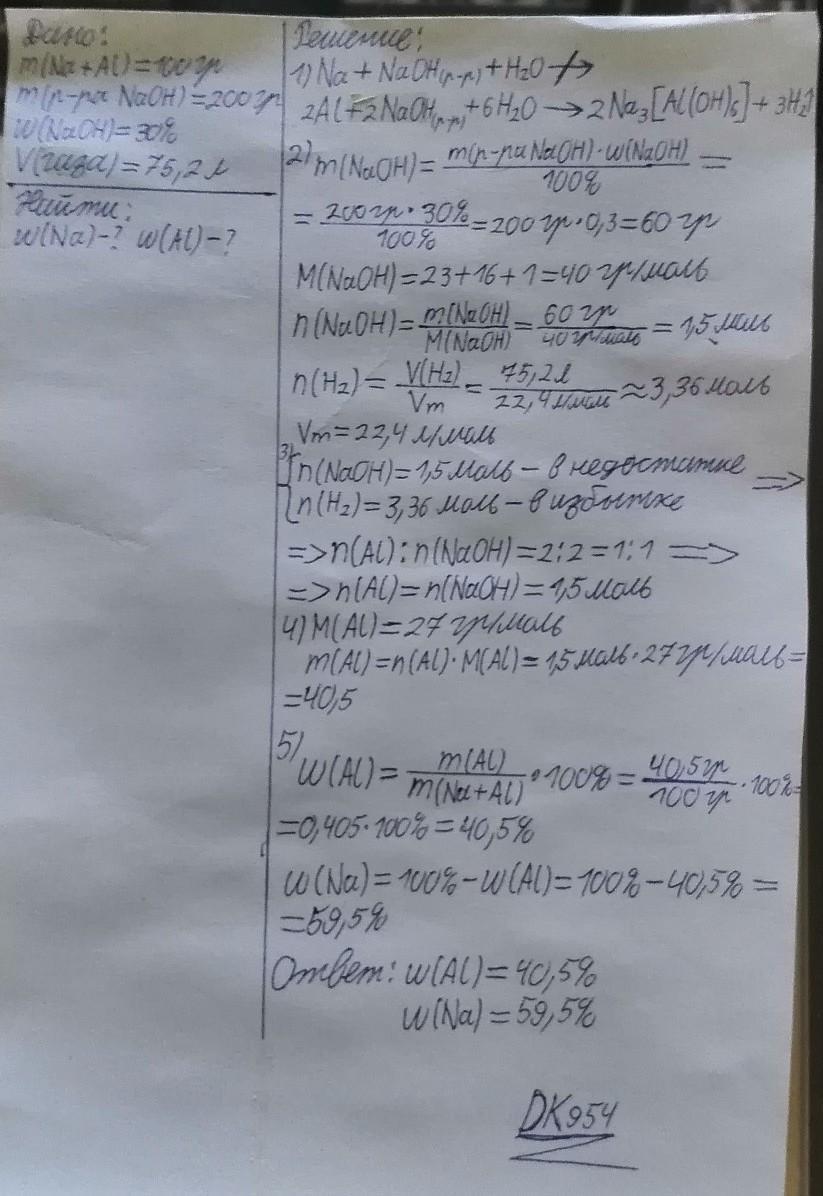 Дано:
m(Na+Al)=100гр
m(р-ра NaOH)=200гр
w(NaOH)=30%
V(газа)=75,2л
Найти:
w(Na)-? w(Al)-?
Решение:
1) Na + NaOH(р-р) + H₂O ↛
2Al+2NaOH(р-р)+6H₂O → 2Na₃[Al(OH)₆] + 3H₂↑
2) m(NaOH) = m(р-ра NaOH)·w(NaOH) / 100% =
= 200гр·30% / 100% = 200гр·0,3 = 60гр
M(NaOH)=23+16+1=40гр/моль
n(NaOH) = m(NaOH) / M(NaOH) = 60гр / 40гр/моль = 1,5моль
n(H₂) = V(H₂) / Vm = 75,2л / 22,4л/моль ≈ 3,36моль
Vm = 22,4л/моль
3) { n(NaOH)=1,5моль – в недостатке =>
n(H₂)=3,36моль – в избытке
=> n(Al):n(NaOH)=2:2=1:1 =>
=> n(Al)=n(NaOH)=1,5моль
4) M(Al)=27гр/моль
m(Al)=n(Al)·M(Al)=1,5моль·27гр/моль=
=40,5
5) w(Al) = m(Al) / m(Na+Al) · 100% = 40,5гр / 100гр · 100%=
=0,405·100%=40,5%
w(Na)=100%-w(Al)=100%-40,5%=
=59,5%
Ответ: w(Al)=40,5%
w(Na)=59,5%
DK954